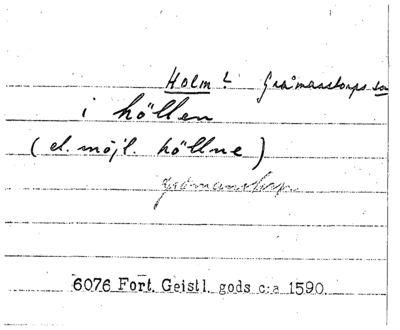 Holm? Gråmanstorps sn
i höllen
(el. möjl. höllne)
Gråmanstorp.
6076 Fort. Geistl. gods c:a 1590